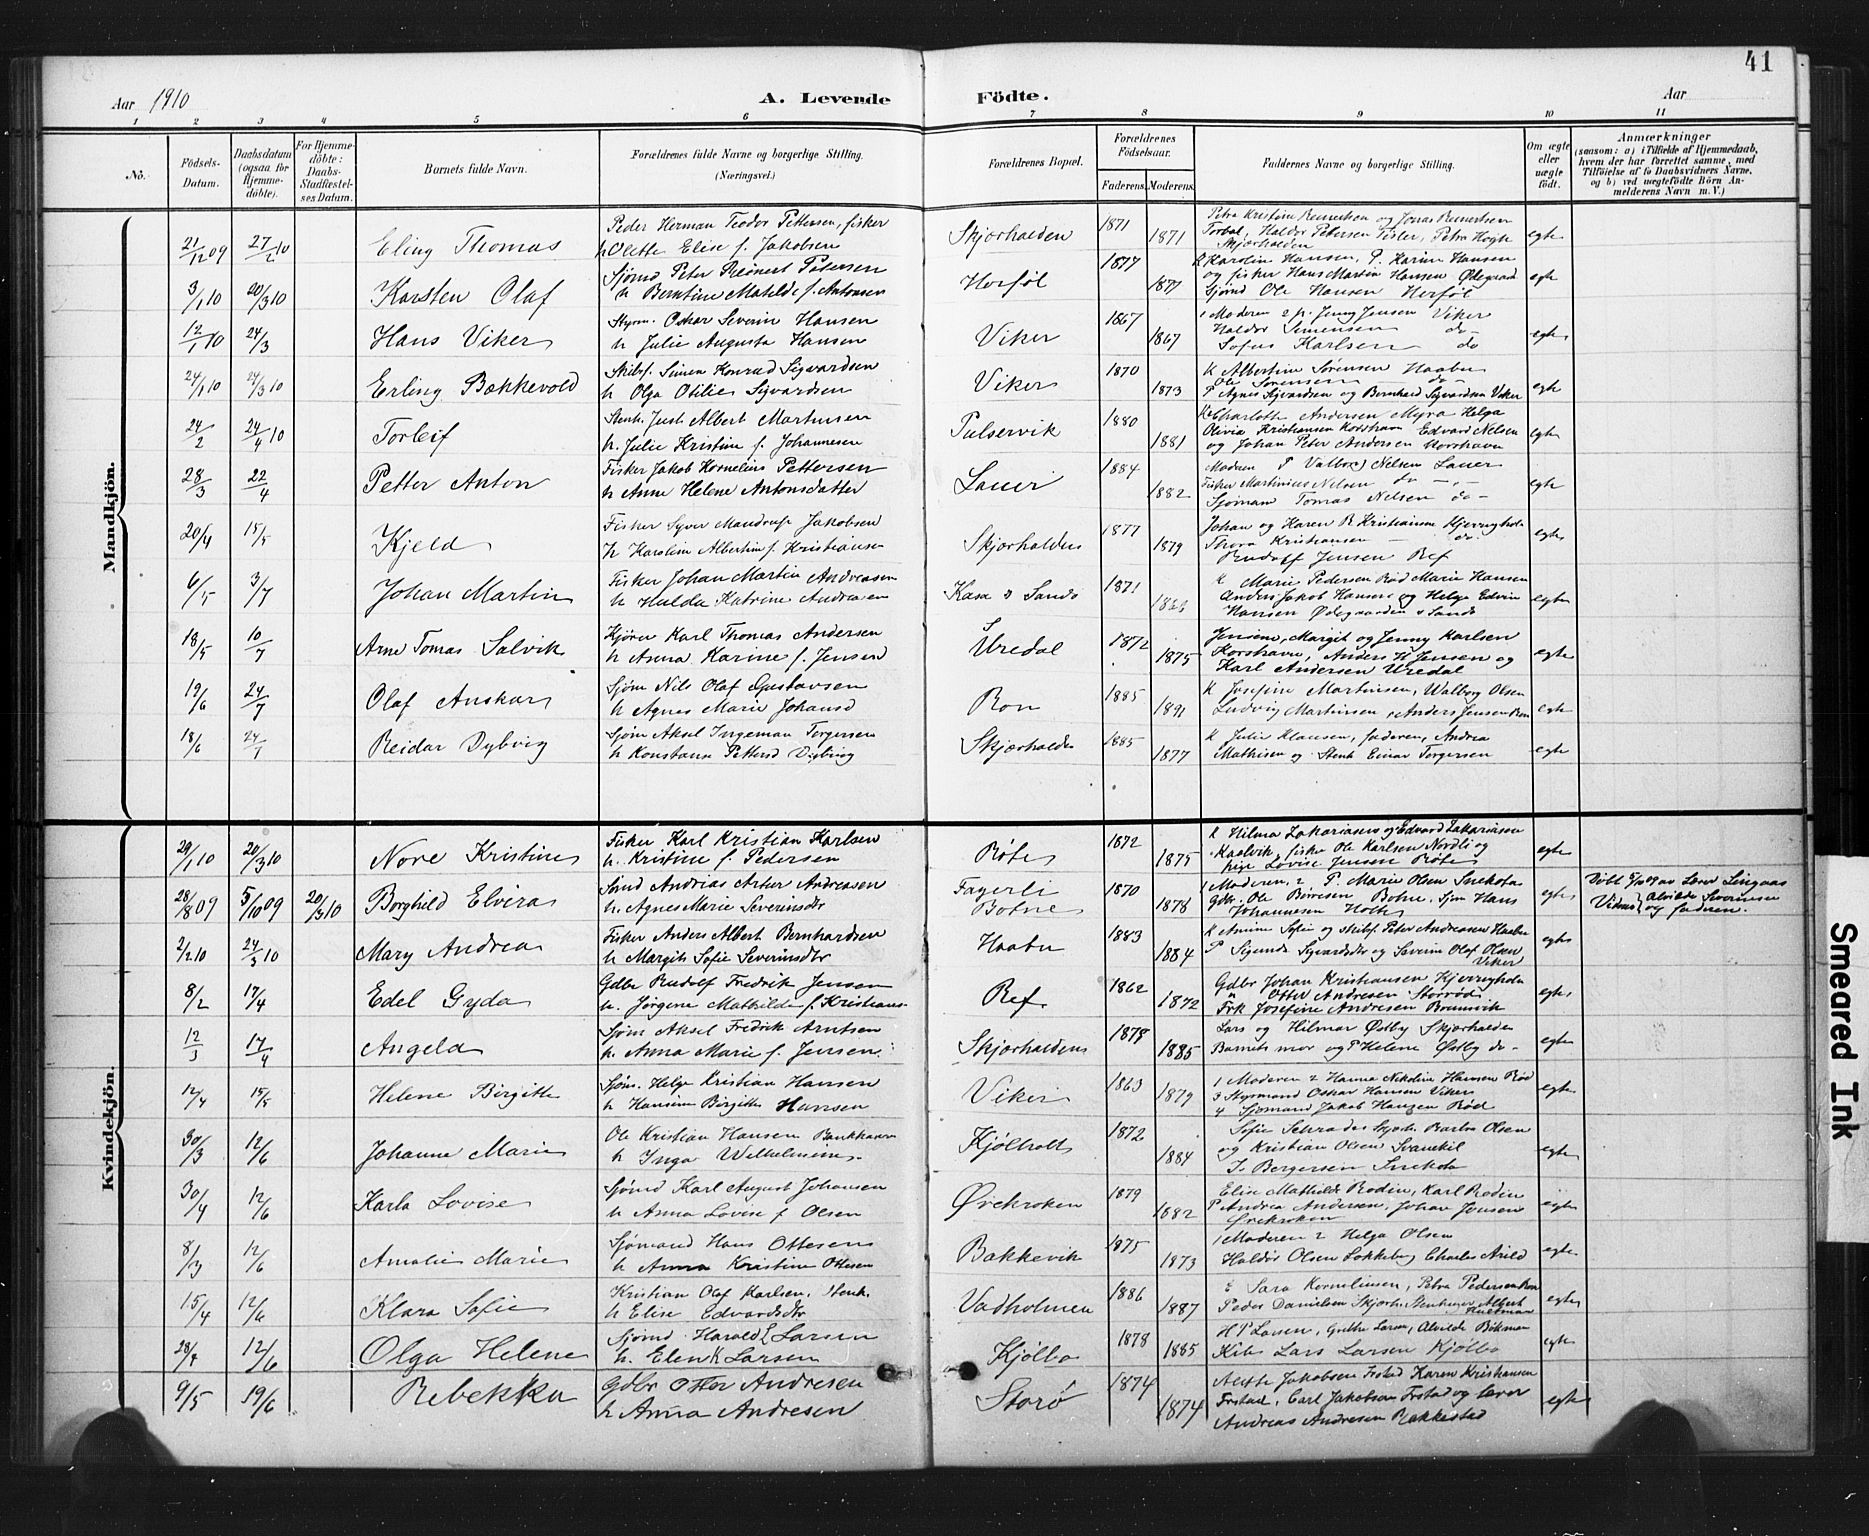 41
Aar 1910
A. Levende Födte.
Aar
1 2 3 4 5 6 7 8 9 10 11
No.
Födsels-
Datum.
Daabsdatum
(ogsaa for
Hjemme-
döbte).
For Hjemme-
döbte:
Daabs-
Stadfæstel-
ses Datum.
Barnets fulde Navn.
Forældrenes fulde Navne og borgerlige Stilling.
(Næringsvei.)
Forældrenes Bopæl.
Forældrenes
Födselsaar.
Faderens. Moderens.
Faddernes Navne og borgerlige Stilling.
Om ægte
eller
uægte
födt.
Anmærkninger
(saasom: a) i Tilfælde af Hjemmedaab,
hvem der har forrettet samme, med
Tilföielse af to Daabsvidners Navne,
og b) ved uægtefödte Börn An-
melderens Navn m. V.)
Mandkjön.
Peder Herman Teodor Pettersen, fisker
21/12 09 27/2 10 Eling Thomas h Olette Elise f. Jakobsen Skjærhalden 1871 1871 egte
Petra Kristine Reinertsen og Jonas Reinertsen
Skjærhalden
Sjømd Peter Reinert Petersen
3/1 10 20/3 10 Karsten Olaf h Berntine Matilde f. Antonsen Herføl 1877 1877 egte
Karoline Hansen, P. Karine Hansen
og fisker Hans Martin Hansen Ødegaard
Sjømd Ole Hansen Herføl
Styrm. Oskar Severin Hansen
12/1 10 24/3 Hans Viker h Julie Augusta Hansen Viker 1867 1867 egte
1 Moderen 2 p. Jenny Jensen Viker
Haldor Simensen do
Sofus Karlsen do
Skibsf. Simen Konrad Sigvardsen
24/1 10 24/3 10 Erling Bækkevold h Olga Otilie Sigvardsen Viker 1870 1873 egte
K Albertine Sørensen Haabu
Ole Sørensen do
P Agnes Sigvardsen og Bernhard Sigvardsen Viker
Stenh. Just Albert Martinsen
24/2 24/4 10 Torleif h. Julie Kristine f. Johannesen Pulservik 1880 1881 egte
K Charlotte Andersen Myra Helga
Olivia Kristiansen Korshavn Edvard Nelsen
og Johan Peter Andersen Korshavn
Fisker Jakob Kornelius Pettersen
28/3 22/4 Petter Anton h Anne Helene Antonsdatter Lauer 1884 1882 egte
Moderen P Valborg Nelsen Lauer
Fisker Martinius Nelsen do
Sjømand Tomas Nelsen do
Fisker Syver Mandrup Jakobsen
20/4 15/5 Kjeld h Karoline Albertine f. Kristiansen Skjærhalden 1877 1879 egte
Johan og Karen B Kristiansen
Thora Kristiansen do
Rudolf Jensen Ref
Fisker Johan Martin Andreasen
6/5 3/7 Johan Martin h Hulda Katrine Andreasen 1871 egte
K Marie Pedersen Rød Marie Hansen
Anders Jakob Hansen og Helge Edvin
Hansen Ødegaarden s Sandø
Kjører Karl Thomas Andersen
18/5 10/7 Arne Tomas Solvik h Anna Karine f. Jensen Uredal 1872 1875 egte
Jensine, Margit og Jenny Karlsen
Korshavn, Anders H Jensen og
Karl Andersen Uredal
Sjøm Nils Olaf Gustavsen
19/6 24/7 Olaf Anskar h Agnes Marie Johansd Ron 1885 1891 egte
K Josefine Martinsen, Walborg Olsen
Ludvig Martinsen, Anders Jensen Ron
Sjøm Aksel Ingeman Torgersen
18/6 Reidar Dybvig h Konstanse Pettersd Dybvig Skjærhalden 1885 1877 egte
K Julie Klausen, faderen, Andrea
Mathisen og Stenh Einar Torgersen
Kvindekjön.
Fisker Karl Kristian Karlsen
29/1 10 20/3 10 Nore Kristine h. Kristine f. Pedersen Røte 1872 1875 egte
K Hilma Zakariasen og Edvard Zakariassen
Kaalvik, fisker Ole Karlsen Nordli og
pige Lovise Jensen Røte
Sømd Andrias Artur Andreasen
28/8 09 5/10 09 20/3 10 Borghild Elvira h. Agnes Marie Severinsdtr Fagerli Botne 1870 1878 egte
1 Moderen, 2 P. Marie Olsen Snekota
Gdbr. Ole Børresen Botne, Sjøm Hans
Johannesen Holte
Døbt 5/10 09 av Lærer Lingaas
Vidner Alvilde Severinsen
og faderen.
Fisker Anders Albert Bernhardsen
2/2 10 24/3 10 Mary Andrea h Margit Sofie Severinsdtr Haabu 1883 1884 egte
K Amine Sofie og skibsf. Peter Andreasen Haabu
P Sigunda Sigvardsdtr og Severin Olaf Olsen
Viker
Gdbr Rudolf Fredrik Jensen
8/2 17/4 Edel Gyda h. Jørgene Mathilde f. Kristians Ref 1862 1872 egte
Gdbr Johan Kristiansen
" Otter Andresen Storrød
Frk Josefine Andresen Brunsvik
Sjøm Aksel Fredrik Arntsen
12/3 17/4 Angela h. Anna Marie f. Jensen Skjærhalden 1878 1885 egte
Lars og Hilmar Østby Skjærhalden
Barnets mor og P Helene Østby do
Sjøm. Helge Kristian Hansen
12/4 15/5 Helene Birgitte h Hansine Birgitte Hansen Viker 1863 1879 egte
1 Moderen 2 Hanna Nikoline Hansen Rød
3 Styrmand Oskar Hansen Viker
4 Sjømand Jakob Hansen Rød
Ole Kristian Hansen Bankhavn
30/3 12/6 Johanne Marie h Inga Wilhelmine Kjølholt 1872 1884 egte
Sofie Schrader Barbro Olsen
og Kristian Olsen Svanekil
J. Bergersen Snekota
Sjømd Karl August Johansen
30/4 12/6 Karla Lovise h Anna Lovise f Olsen Ørekroken 1879 1882 egte
Elise Mathilde Rodin, Karl Rodin
P Andrea Andersen, Johan Jensen
Ørekroken
Sjømand Hans Ottesen
8/3 12/6 Amalie Marie h Anna Kristine Ottesen Bakkevik 1875 1873 egte
1 Moderen 2 Helga Olsen
Haldor Olsen Løkkeberg Charles Arild
Kristian Olaf Karlsen, Stenh.
15/4 12/6 Klara Sofie h Elise Edvardsdtr Vadholmen 1886 1887 egte
E Sara Korneliusen, Petra Pedersen
Peder Danielsen Skjærh. Stenhugger Albert
Hultman
Sjømd Harald L Larsen
28/4 12/6 Olga Helene h. Elen K Larsen Kjølbo 1878 1885 egte
H P Larsen, Grethe Larsen, Alvilde Bøkman
Kirk Lars Larsen Kjølbo
Gdbr Otto Andresen
9/5 19/6 Rebekka h Anna Andresen Storø 1874 1874 egte
Alette Jakobsen Frstad Karen Kristiansen
Frstad, Carl Jakobsen Frstad og lærer
Andreas Andresen Bakkestad
Smeared Ink